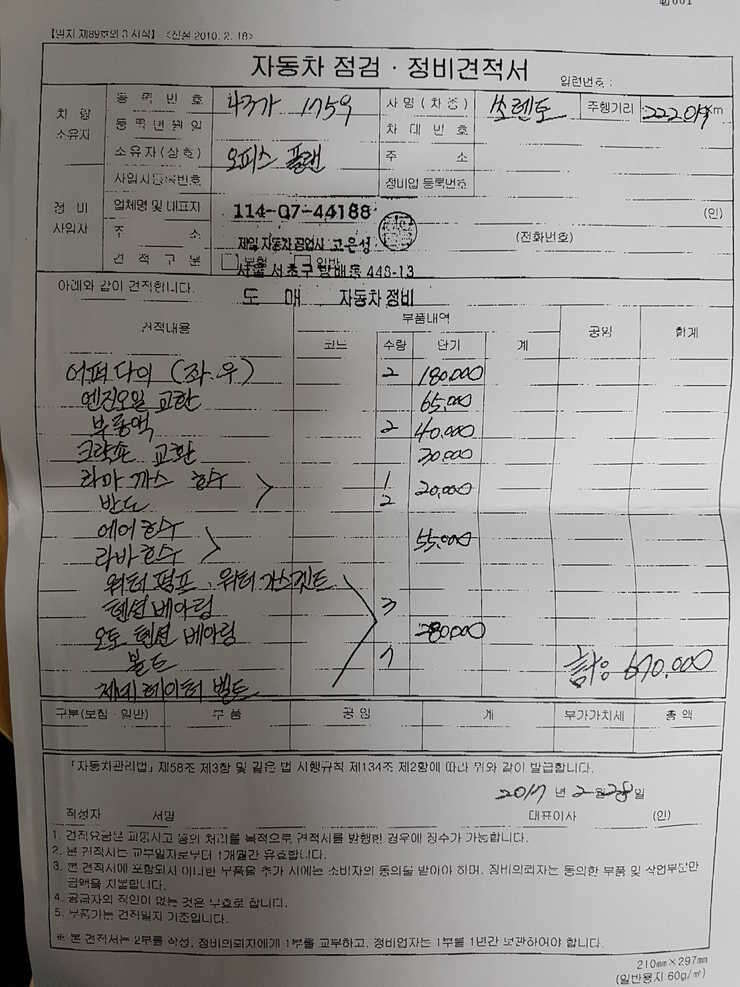 【별지 제89호의 3 서식】 <신설 2010. 2. 18>
자동차 점검 · 정비견적서
일련번호 :
차량 소유자
등록번호 1759 차명(차종) 쏘렌토 주행거리 km
등록년월일 차대번호
소유자(상호) 오피스 플랜 주소
정비 사업자
사업자등록번호 정비업 등록번호
업체명 및 대표자 114-07-44188 (인)
주소 고은성 (전화번호)
견적구분 보험 일반 서울 서초구 방배동 448-13
아래와 같이 견적합니다. 도매 자동차 정비
견적내용 부품내역 공임 합계
코드 수량 단가 계
어퍼 다이 (좌.우) 2 180,000
엔진오일 교환 65,000
부동액 2 40,000
크락숀 교환 30,000
라마 까스 호수 1 20,000
반도 2
에어호수 55,000
라바호수
워터 펌프. 워터 가스켓트
텐션 베아링 3
오토 텐션 베아링 280,000
볼트 1 합 670,000
제네레이터 벨트
구분(보험 · 일반) 부품 공임 계 부가가치세 총액
「자동차관리법」 제58조 제3항 및 같은 법 시행규칙 제134조 제2항에 따라 위와 같이 발급합니다.
2017 년 2 월 28 일
작성자 서명 대표이사 (인)
1. 견적요금은 교통사고 등의 처리를 목적으로 견적서를 발행한 경우에 징수가 가능합니다.
2. 본 견적서는 교부일자로부터 1개월간 유효합니다.
3. 본 견적서에 포함되지 아니한 부품을 추가 시에는 소비자의 동의를 받아야 하며, 정비의뢰자는 동의한 부품 및 작업부분만
금액을 지불합니다.
4. 공급자의 직인이 없는 것은 무효로 합니다.
5. 부품가는 견적일자 기준입니다.
※ 본 견적서는 2부를 작성, 정비의뢰자에게 1부를 교부하고, 정비업자는 1부를 1년간 보관하여야 합니다.
210㎜×297㎜
(일반용지 60g/㎡)